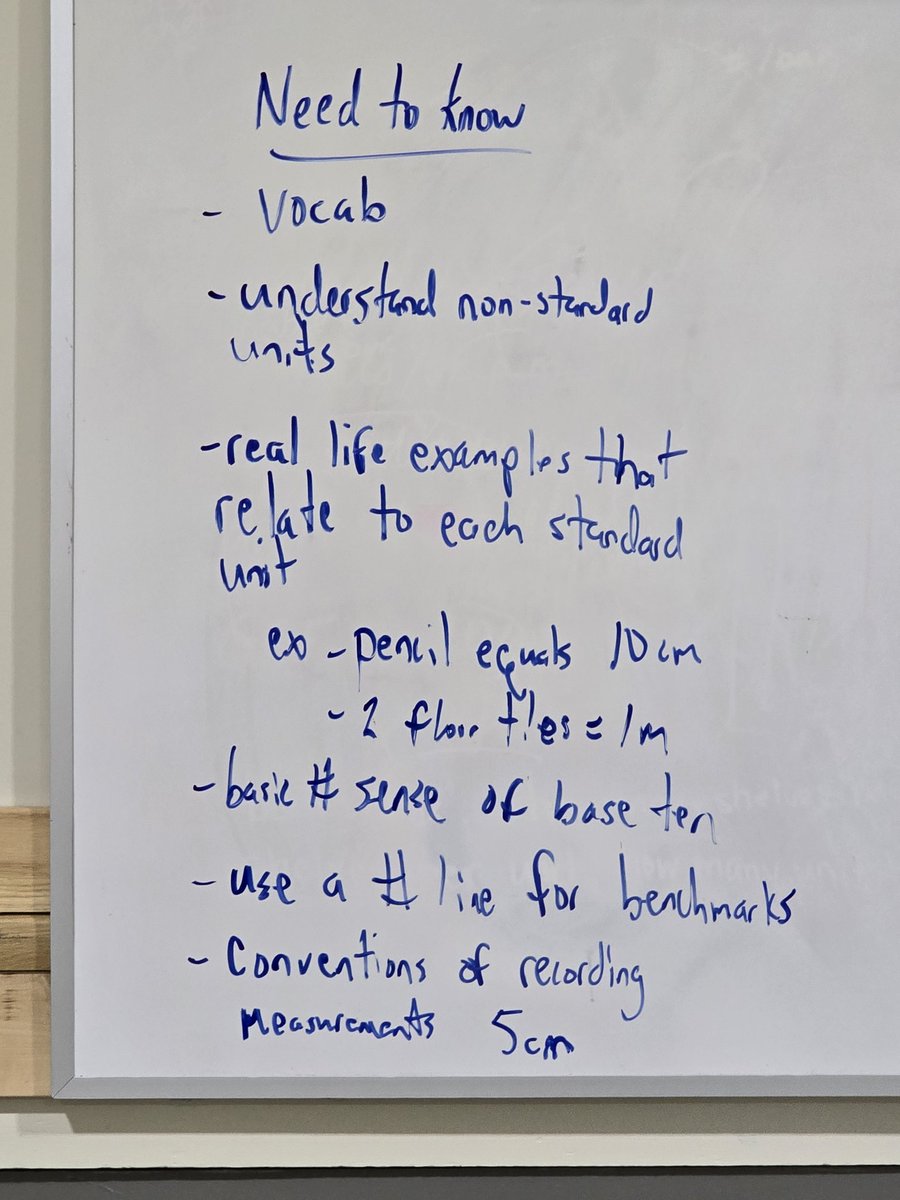 Need to know
- Vocab
- understand non-standard
units
- real life examples that
relate to each standard
unit
ex - pencil equals 10cm
- 2 floor tiles = 1m
- basic # sense of base ten
- use a # line for benchmarks
- Conventions of recording
measurements 5cm